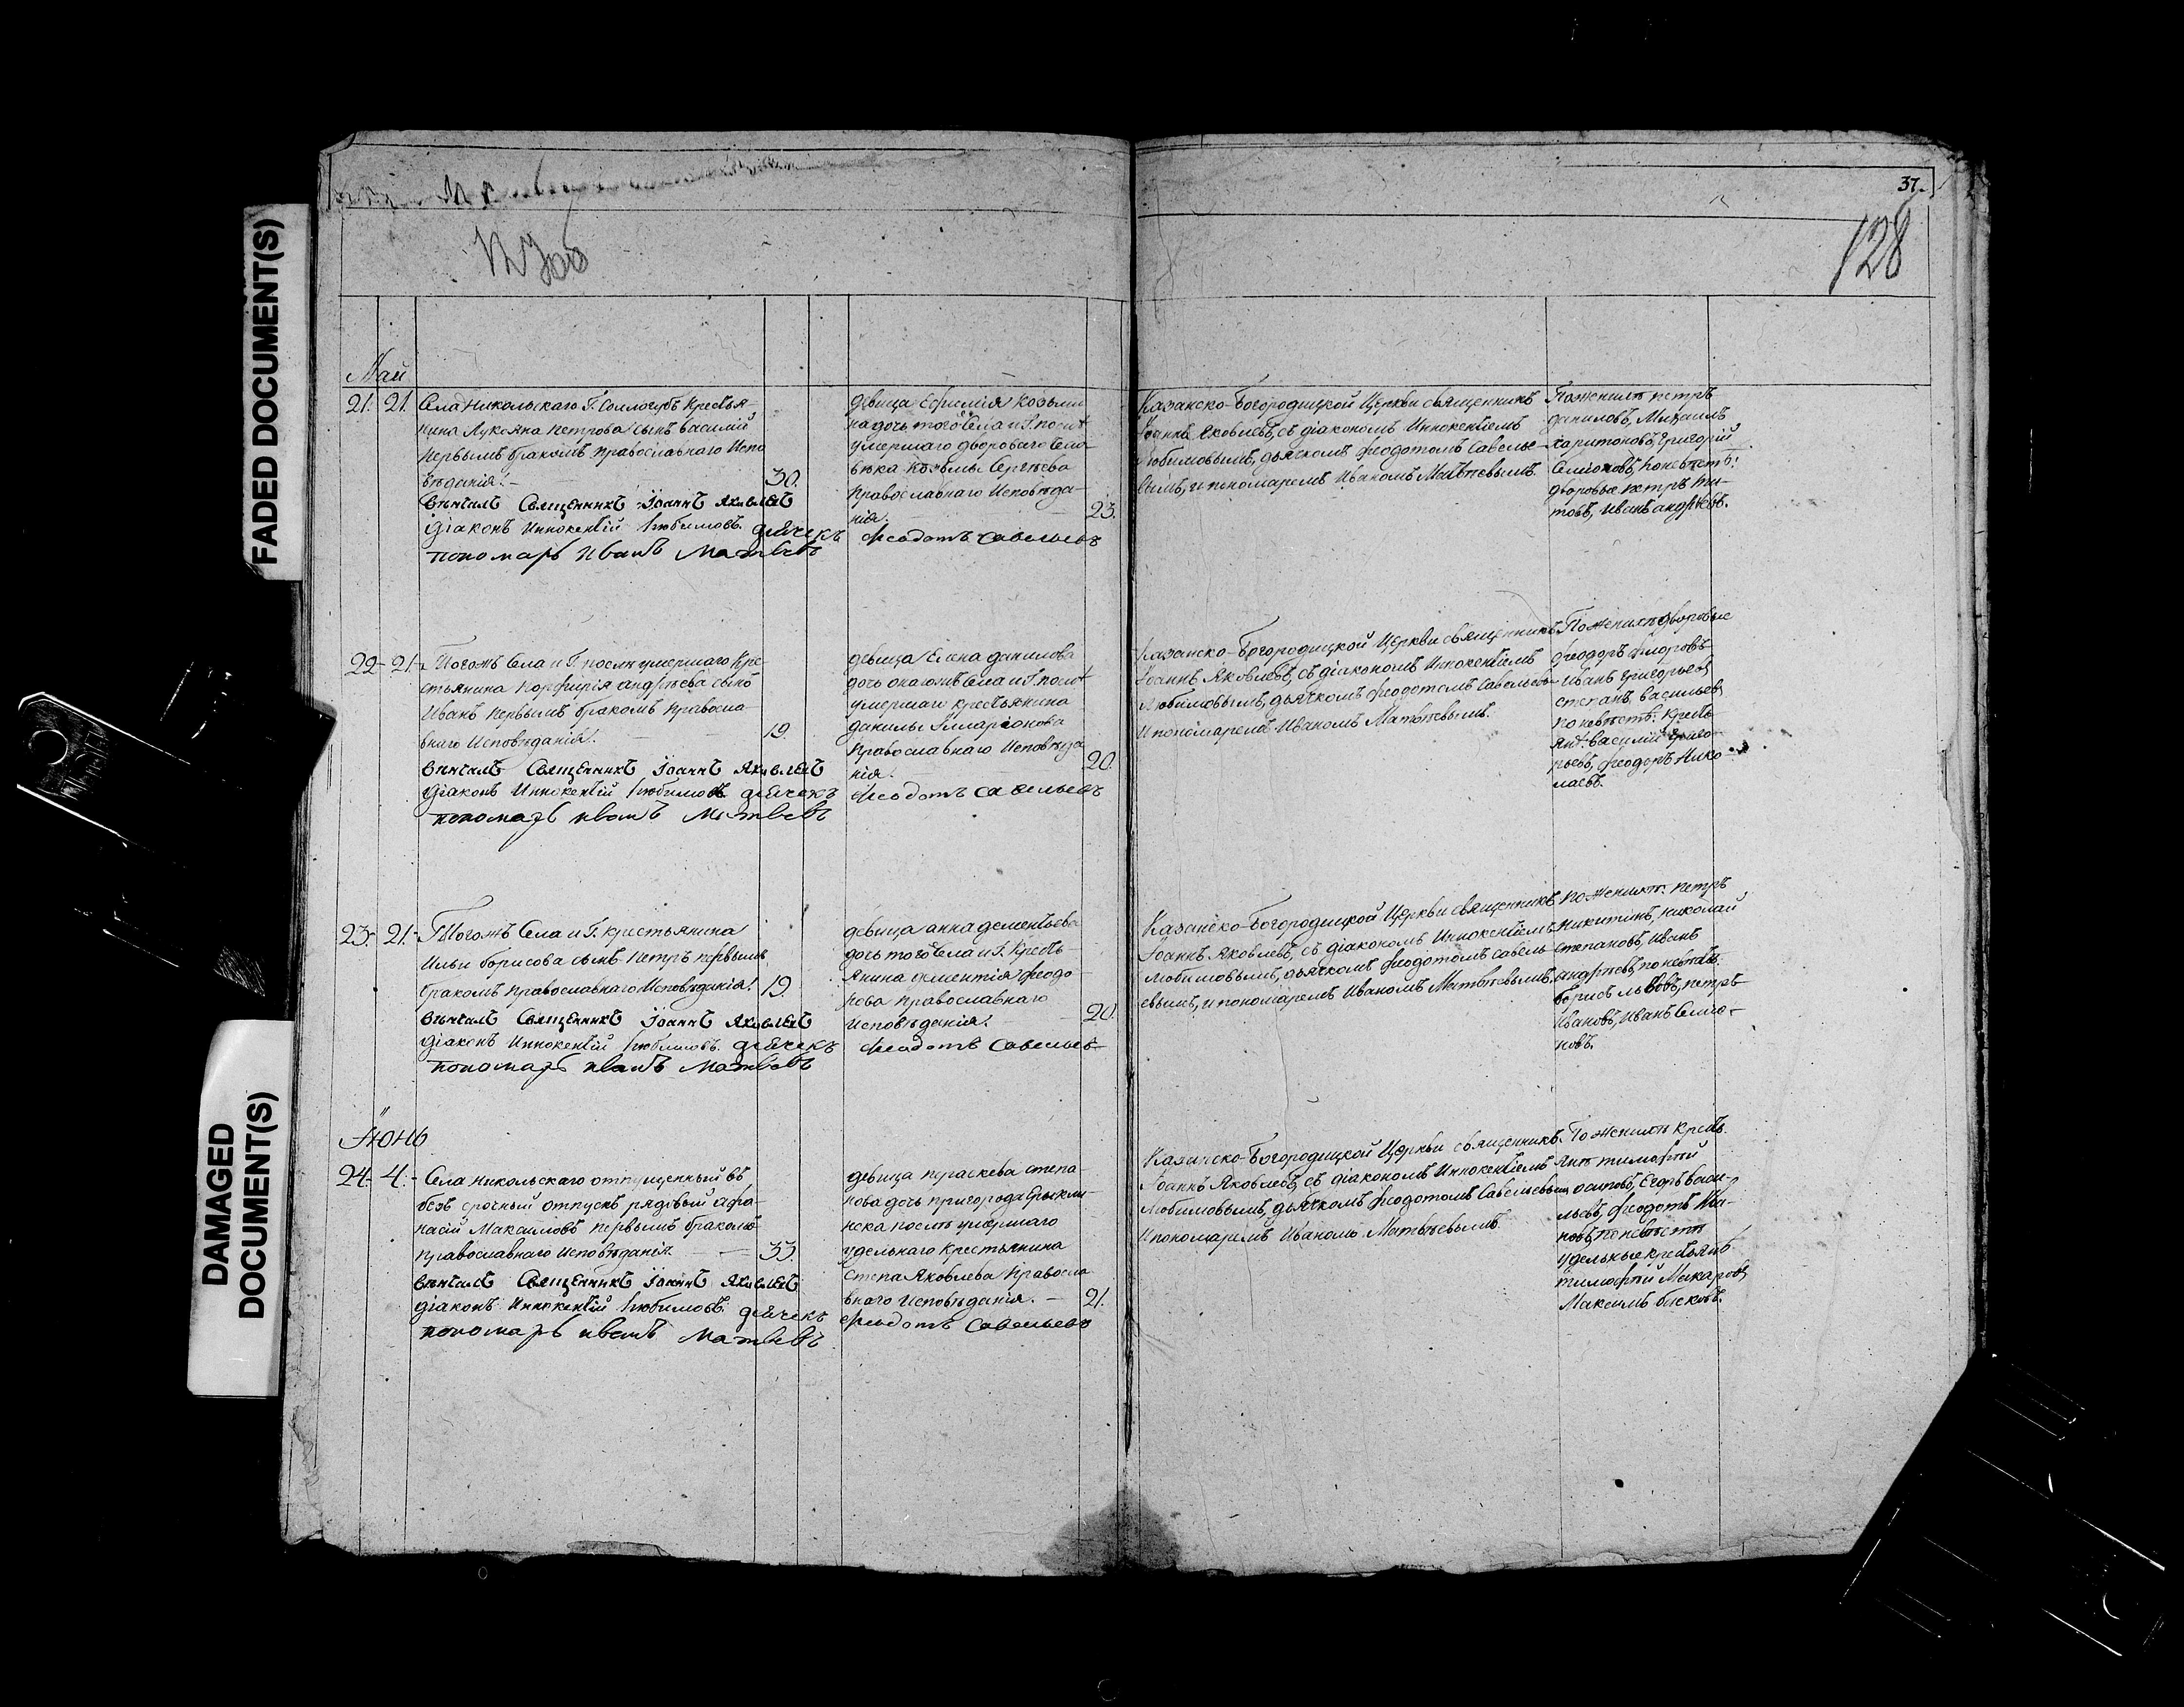 FADED DOCUMENT(S)
DAMAGED
DOCUMENT(S)
37.
128
Май
21. 21. Села Никольскаго Г. Соллогубъ Крестья-
нина Лукьяна Петрова сынъ Василий
первымъ бракомъ православнаго Испо
вѣданія. 30.
Вѣнчалъ Священникъ Іоаннъ Яковлевъ
Діаконъ Иннокентій Любимовъ. дьячекъ Феодотъ Савельевъ
пономарь Иванъ Матвевъ
девица Ефимія Козьми
на дочь того Села и Г. послѣ
умершаго двороваго чело
вѣка Козьмы Сергѣева
Православнаго Исповѣда-
нія. 23.
Казанско-Богородицкой Церкви священникъ
Іоаннъ Яковлевъ, съ діакономъ Иннокентіемъ
Любимовымъ, дьячкомъ Феодотомъ Савелье-
вымъ, и пономаремъ Иваномъ Матвѣевымъ.
По женихѣ Петръ
Даниловъ, Михаилъ
Харитоновъ, Григорій
Семіоновъ, по невѣстѣ:
дворовые Петръ Ти-
товъ, Иванъ Андрѣевъ.
22. 21. Тогожъ Села и Г. послѣ умершаго Кре-
стьянина Порфирія Андрѣева сынъ
Иванъ первымъ бракомъ Правосла-
внаго Исповѣданія. 19
Вѣнчалъ Священникъ Іоаннъ Яковлевъ
Діаконъ Иннокентій Любимовъ дьячекъ Феодотъ Савельевъ
пономарь Иванъ Матвевъ
девица Елена Данилова
дочь онагожъ Села и Г. послѣ
умершаго крестьянина
Данилы Иларіонова
Православнаго Исповѣда
нія. 20.
Казанско-Богородицкой Церкви священникъ
Іоаннъ Яковлевъ, съ діакономъ Иннокентіемъ
Любимовымъ, дьячкомъ Феодотомъ Савельевы
и пономаремъ Иваномъ Матвѣевымъ.
По женихѣ дворовые
Феодоръ Флоровъ
Иванъ Григорьевъ,
Степанъ Васильевъ,
по невѣстѣ: Кресть
яне: Василій Григо-
рьевъ, Феодоръ Нико-
лаевъ.
23. 21. Тогожъ Села и Г. крестьянина
Ильи Борисова сынъ Петръ первымъ
бракомъ Православнаго Исповѣданія. 19.
Вѣнчалъ Священникъ Іоаннъ Яковлевъ
Діаконъ Иннокентій Любимовъ. дьячекъ Феодотъ Савельевъ
пономарь Иванъ Матвевъ
девица Анна Дементьева
дочь того Села и Г. Кресть-
янина Дементія Феодо-
рова Православнаго
Исповѣданія. 20.
Казанско-Богородицкой Церкви священникъ
Іоаннъ Яковлевъ, съ діакономъ Иннокентіемъ
Любимовымъ, дьячкомъ Феодотомъ Савель-
евымъ, и пономаремъ Иваномъ Матвѣевымъ.
По женихѣ: Петръ
Никитинъ, Николай
Степановъ, Иванъ
Андрѣевъ, по невѣстѣ:
Борисъ Львовъ, Петръ
Ивановъ, Иванъ Семіо-
новъ.
Іюнь
24. 4. Села Никольскаго отпущенный въ
безсрочный отпускъ рядовый Афа-
насій Максимовъ первымъ бракомъ
Православнаго Исповѣданія 33.
Вѣнчалъ Священникъ Іоаннъ Яковлевъ
Діаконъ Иннокентій Любимовъ. дьячекъ Феодотъ Савельевъ
пономарь Иванъ Матвевъ
девица Параскева Степа-
нова дочь пригорода Ерыкли-
нска послѣ умершаго
удельнаго Крестьянина
Степа Яковлева Правосла
внаго Исповѣданія. 21.
Казанско-Богородицкой Церкви священникъ
Іоаннъ Яковлевъ, съ діакономъ Иннокентіемъ
Любимовымъ, дьячкомъ Феодотомъ Савельевым
и пономаремъ Иваномъ Матвѣевымъ.
По женихѣ Кресть
яне Тимофѣй
Осиповъ, Егоръ Васи-
льевъ, Феодотъ Ива-
новъ, по невѣстѣ
удельные крестьяне
Тимофѣй Макаровъ,
Максимъ